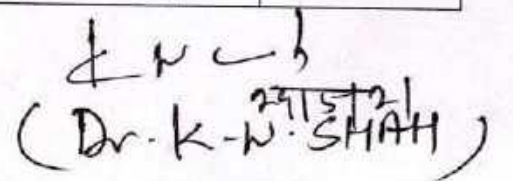 29/5/21
(Dr. K-N. SHAH)